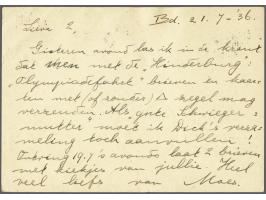 Bd. 21.7-'36.
Lieve 2,
Gisteren avond las ik in de krant
dat men met de "Hindenburg":
"Olympiadefahrt" brieven en kaar-
ten met (of zonder) Δ zegel mag
verzenden. Als gute Schwieger-
mutter" moet ik Dick's verza-
meling toch aanvullen!
Ontving 19.7's avonds laat 2 brieven
met kiekjes van jullie. Heel
veel liefs van Moes.